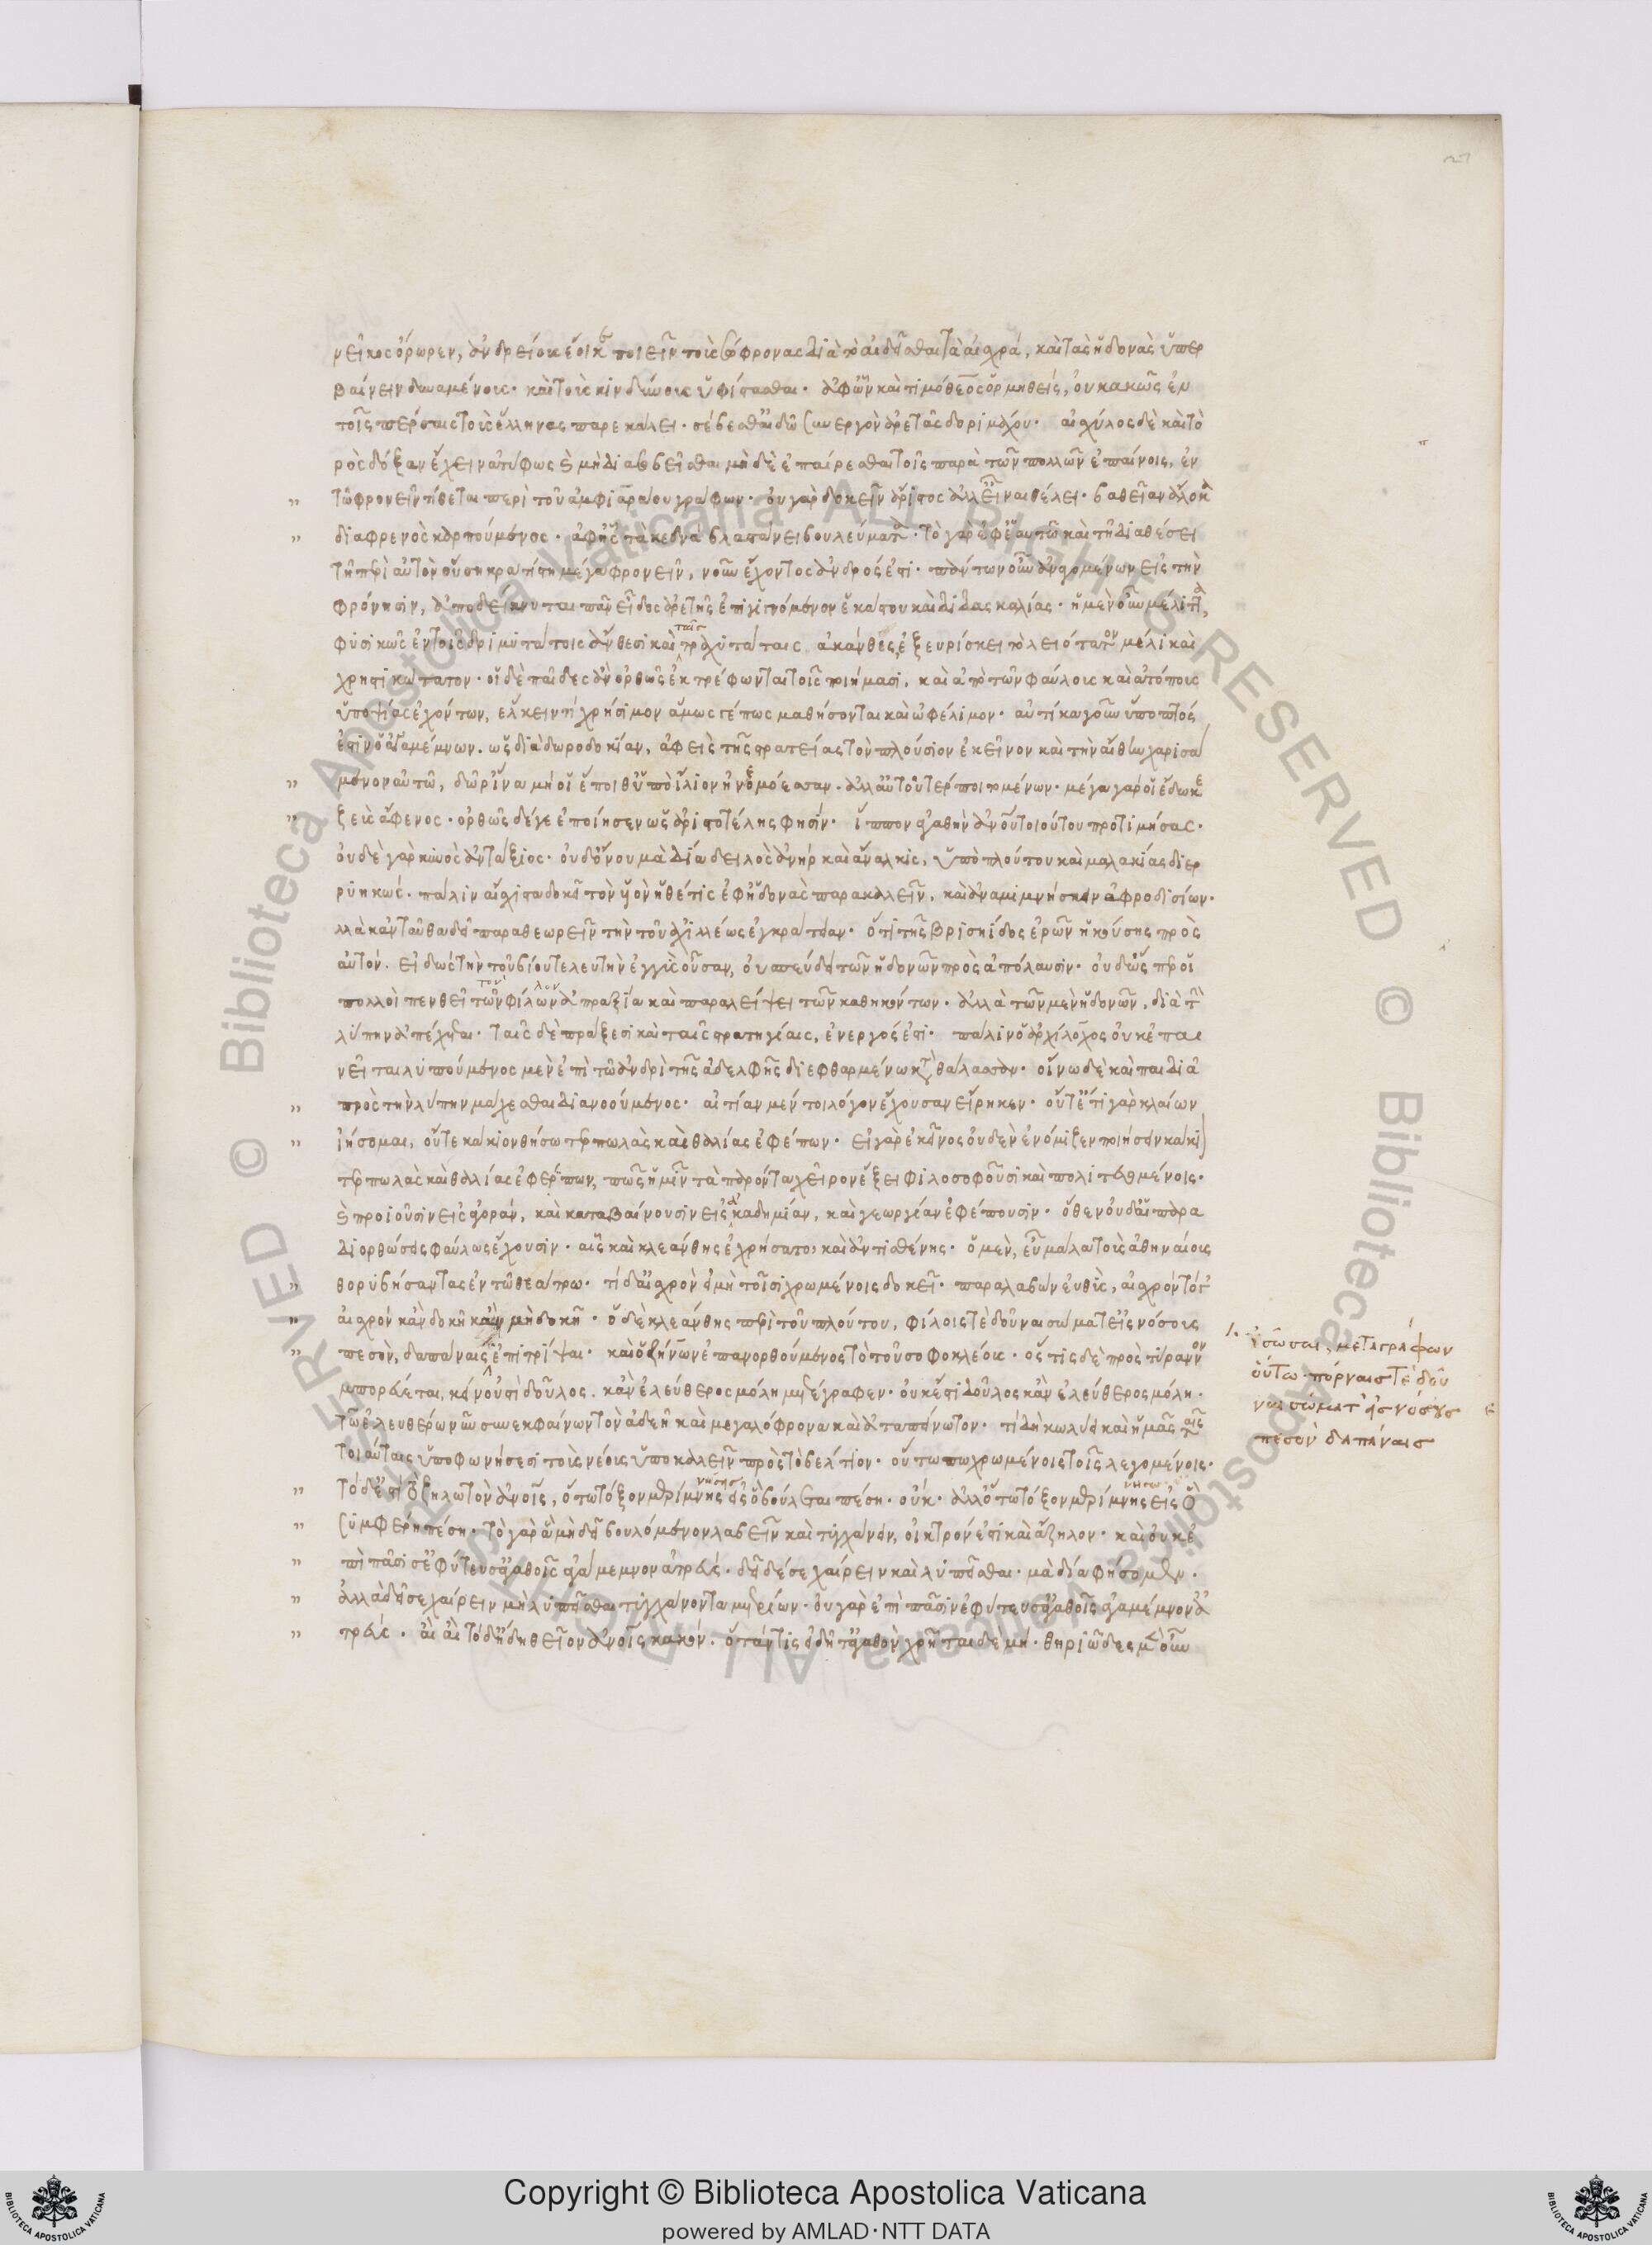 νεῖκος ὄρωρεν, ἀνδρείους ἔοικε ποιεῖν τοὺς σώφρονας διὰ τὸ αἰδεῖσθαι τὰ αἰσχρά, καὶ τὰς ἡδονὰς ὑπερ
βαίνειν δυναμένους· καὶ τοὺς κινδύνους ὑφίστασθαι· ἀφ' ὧν καὶ τιμόθεος ὁρμηθείς, οὐ κακῶς ἐν
τοῖς πέρσαις τοὺς ἕλληνας παρεκάλει· σέβεσθ' αἰδῶ συνεργὸν ἀρετᾶς δοριμάχου· αἰσχύλος δὲ καὶ τὸ
ρὸς δόξαν ἔχειν ἀτύφως καὶ μὴ διασοβεῖσθαι μὴ δὲ ἐπαίρεσθαι τοῖς παρὰ τῶν πολλῶν ἐπαίνοις, ἐν
τῶ φρονεῖν τίθεται περὶ τοῦ ἀμφιαράου γράφων· οὐ γὰρ δοκεῖν ἄριστος ἀλλ' εἶναι θέλει· βαθεῖαν ἄλοκα
διὰ φρενὸς καρπούμενος· ἀφ' ἧς τὰ κεδνὰ βλαστάνει βουλεύματα· τὸ γὰρ ἐφ' ἑαυτῶ καὶ τῆ διαθέσει
τῆ περὶ αὑτὸν οὔση κρατίστη μέγα φρονεῖν, νοῦν ἔχοντος ἀνδρός ἐστι· πάντων οὖν ἀναγομένων εἰς τὴν
φρόνησιν, ἀποδείκνυται πᾶν εἶδος ἀρετῆς ἐπιγινόμενον ἐκ λόγου καὶ διδασκαλίας· ἡ μὲν οὖν μέλιττα,
φυσικῶς ἐν τοῖς δριμυτάτοις ἄνθεσι καὶ ταῖς τραχυτάταις ἀκάνθαις, ἐξευρίσκει τὸ λειότατον μέλι καὶ
χρηστικώτατον· οἱ δὲ παῖδες ἂν ὀρθῶς ἐκτρέφωνται τοῖς ποιήμασι, καὶ ἀπὸ τῶν φαύλους καὶ ἀτόπους
ὑποψίας ἐχόντων, ἕλκειν τι χρήσιμον ἁμωσγέπως μαθήσονται καὶ ὠφέλιμον· αὐτίκα γοῦν ὕποπτός
ἐστιν ὁ ἀγαμέμνων. ὡς διὰ δωροδοκίαν, ἀφεὶς τῆς στρατείας τὸν πλούσιον ἐκεῖνον καὶ τὴν αἴθην χαρισά
μενον αὐτῶ, δῶρ' ἵνα μή οἱ ἕποιθ' ὑπὸ ἴλιον ἠνεμόεσσαν. ἀλλ' αὐτοῦ τέρποιτο μένων· μέγα γάρ οἱ ἔδωκε
ζεὺς ἄφενος· ὀρθῶς δέ γε ἐποίησεν ὡς ἀριστοτέλης φησίν· ἵππον ἀγαθὴν ἀνθρώπου τοιούτου προτιμήσας·
οὐδὲ γὰρ κυνὸς ἀντάξιος· οὐδ' ὄνου μὰ δία δειλὸς ἀνὴρ καὶ ἄναλκις, ὑπὸ πλούτου καὶ μαλακίας διερ
ρυηκώς. πάλιν αἴσχιστα δοκεῖ τὸν υἱὸν ἡ θέτις ἐφ' ἡδονὰς παρακαλεῖν, καὶ ἀναμιμνήσκειν ἀφροδισίων·
λλὰ κἀνταῦθα δεῖ παραθεωρεῖν τὴν τοῦ ἀχιλλέως ἐγκράτειαν· ὅτι τῆς βρισηίδος ἐρῶν ἡκούσης πρὸς
αὐτόν. εἰδὼς τὴν τοῦ βίου τελευτὴν ἐγγὺς οὖσαν, οὐ σπεύδει τῶν ἡδονῶν πρὸς ἀπόλαυσιν· οὐδ' ὥσπερ οἱ
πολλοὶ πενθεῖ τὸν φίλον ἀπραξία καὶ παραλείψει τῶν καθηκόντων· ἀλλὰ τῶν μὲν ἡδονῶν, διὰ τὴν
λύπην ἀπέχεται· ταῖς δὲ πράξεσι καὶ ταῖς στρατηγίαις, ἐνεργός ἐστι· πάλιν ὁ ἀρχίλοχος οὐκ ἐπαι
νεῖται λυπούμενος μὲν ἐπὶ τῶ ἀνδρὶ τῆς ἀδελφῆς διεφθαρμένω κατὰ θάλασσαν· οἴνω δὲ καὶ παιδιᾶ
πρὸς τὴν λύπην μάχεσθαι διανοούμενος· αἰτίαν μέν τοι λόγον ἔχουσαν εἴρηκεν· οὔτ' ἔτι γὰρ κλαίων
ἰήσομαι, οὔτε κάκιον θήσω τερπωλὰς καὶ θαλίας ἐφέπων· εἰ γὰρ ἐκεῖνος οὐδὲν ἐνόμιζεν ποιήσειν κάκι
τερπωλὰς καὶ θαλίας ἐφέπων, πῶς ἡμῖν τὰ παρόντα χεῖρον ἕξει φιλοσοφοῦσι καὶ πολιτευομένοις·
καὶ προιοῦσιν εἰς ἀγοράν, καὶ καταβαίνουσιν εἰς ἀκαδημίαν, καὶ γεωργίαν ἐφέπουσιν· ὅθεν οὐδ' αἱ παρα
διορθώσεις φαύλως ἔχουσιν· αἷς καὶ κλεάνθης ἐχρήσατο καὶ ἀντισθένης· ὁ μὲν, εὖ μάλα τοὺς ἀθηναίους
θορυβήσαντας ἐν τῶ θεάτρω· τί δ' αἰσχρὸν εἰ μὴ τοῖσι χρωμένοις δοκεῖ· παραλαβὼν εὐθὺς, αἰσχρὸν τό γ'
αἰσχρόν κἂν δοκῆ κἂν μὴ δοκῆ· ὁ δὲ κλεάνθης περὶ τοῦ πλούτου, φίλοις τὲ δοῦναι σῶμα τ' εἰς νόσους
πεσὸν, δαπάναις ἐπιτρίψαι· καὶ ὁ ζήνων ἐπανορθούμενος τὸ τοῦ σοφοκλέους· ὅς τις δὲ πρὸς τύραννον
μπορεύεται, κείνου 'στὶ δοῦλος. κἂν ἐλεύθερος μόλη μετέγραφεν· οὐκ ἔστι δοῦλος κἂν ἐλεύθερος μόλη·
τῶ ἐλευθέρω νῦν συνεκφαίνων τὸν ἀδεῆ καὶ μεγαλόφρονα καὶ ἀταπείνωτον· τί δὴ κωλύει καὶ ἡμᾶς ταῖς
τοιαύταις ὑποφωνήσεσι τοὺς νέους ὑποκαλεῖν πρὸς τὸ βέλτιον· οὕτω πω χρωμένους τοῖς λεγομένοις·
τόδ' ἐστὶ τὸ ζηλωτὸν ἀνθρώποις, ὅτω τόξον μερίμνης εἰς ὃ βούλεται πέση· οὐκ· ἀλλ' ὅτω τόξον μερίμνης εἰς ὃ
συμφέρη πέση· τὸ γὰρ ἃ μὴ δεῖ βουλόμενον λαβεῖν καὶ τυγχάνειν, οἰκτρόν ἐστι καὶ ἄζηλον· καὶ οὐκ ἐ
πὶ πᾶσί σ' ἐφύτευσ' ἀγαθοῖς ἀγάμεμνον ἀτρεύς· δεῖ δέ σε χαίρειν καὶ λυπεῖσθαι· μὰ δία φήσομεν·
ἀλλὰ δεῖ σε χαίρειν μὴ λυπεῖσθαι τυγχάνοντα μετρίων· οὐ γὰρ ἐπὶ πᾶσιν ἐφύτευσ' ἀγαθοῖς ἀγαμέμνον ἀ
τρεύς· αἲ αἲ τόδ' ἤδη θεῖον ἀνθρώποις κακόν· ὅταν τις εἰδῆ τἀγαθὸν χρῆται δὲ μή· θηριῶδες μὲν οὖν
ἰσῶσαι, μεταγράφων
οὕτω· πόρναις τὲ δοῦ
ναι σῶμά τ' εἰς νόσους
πεσὸν δαπάναις